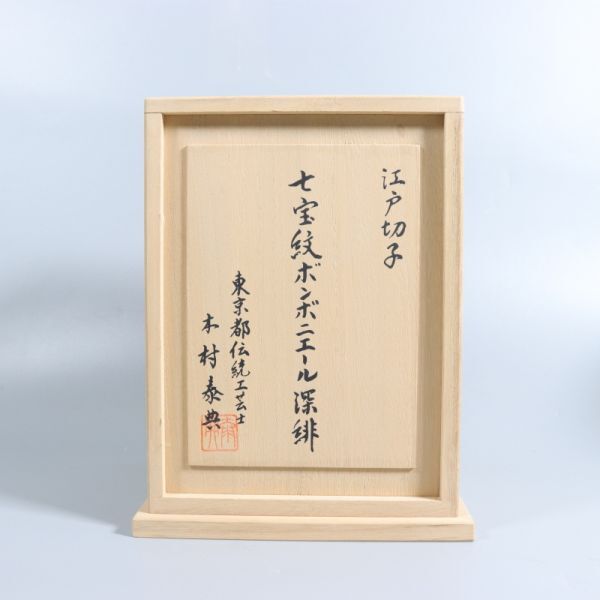 江戸切子
七宝紋ボンボニエール深緋
東京都伝統工芸士
木村泰典